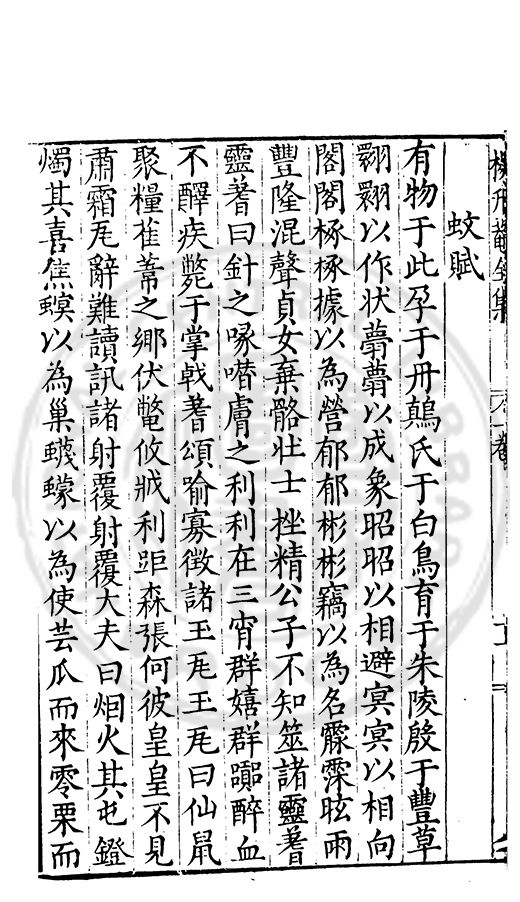 蚊賦
有物于此孕于丹鷏氏于白鳥育于朱陵殷于豐草
翾翾以作状薨薨以成象昭昭以相避㝠㝠以相向
閣閣椓椓據以為營郁郁彬彬竊以為名霡霂眩雨
豐隆混聲貞女棄骼壮士挫精公子不知筮諸靈蓍
靈蓍曰針之喙噆膚之利利在三宵群嬉群䠣醉血
不醳疾斃于掌戟蓍頌喻寡徴諸王𠒋王𠒋曰仙鼠
聚糧萑葦之郷伏鼈攸戕利距森張何彼皇皇不見
肅霜𠒋辭難讀訊諸射覆射覆大夫曰烟火其屯鐙
燭其喜焦螟以為巢蠛蠓以為使芸瓜而來零栗而